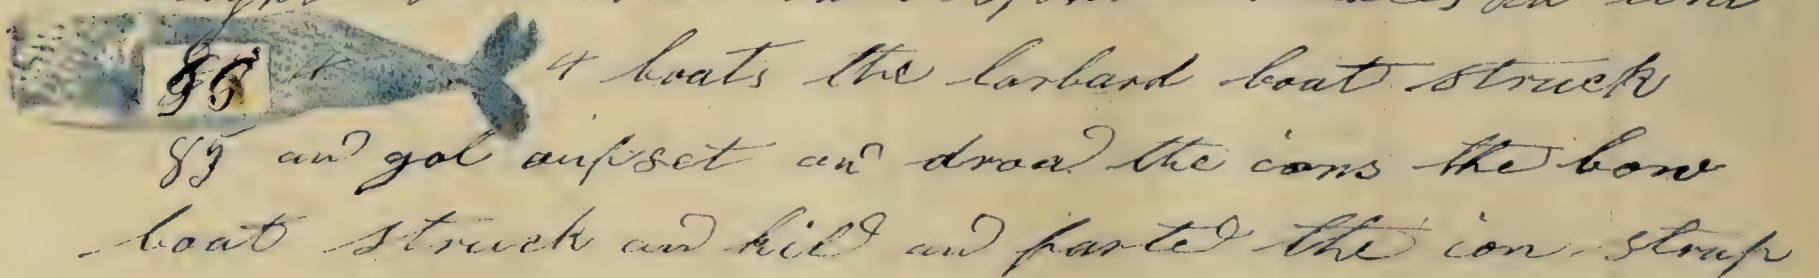 86 4 boats the larbard boat struck
85 and got aupset and droad the irons the bow
boat struck and kild and parted the iron strap